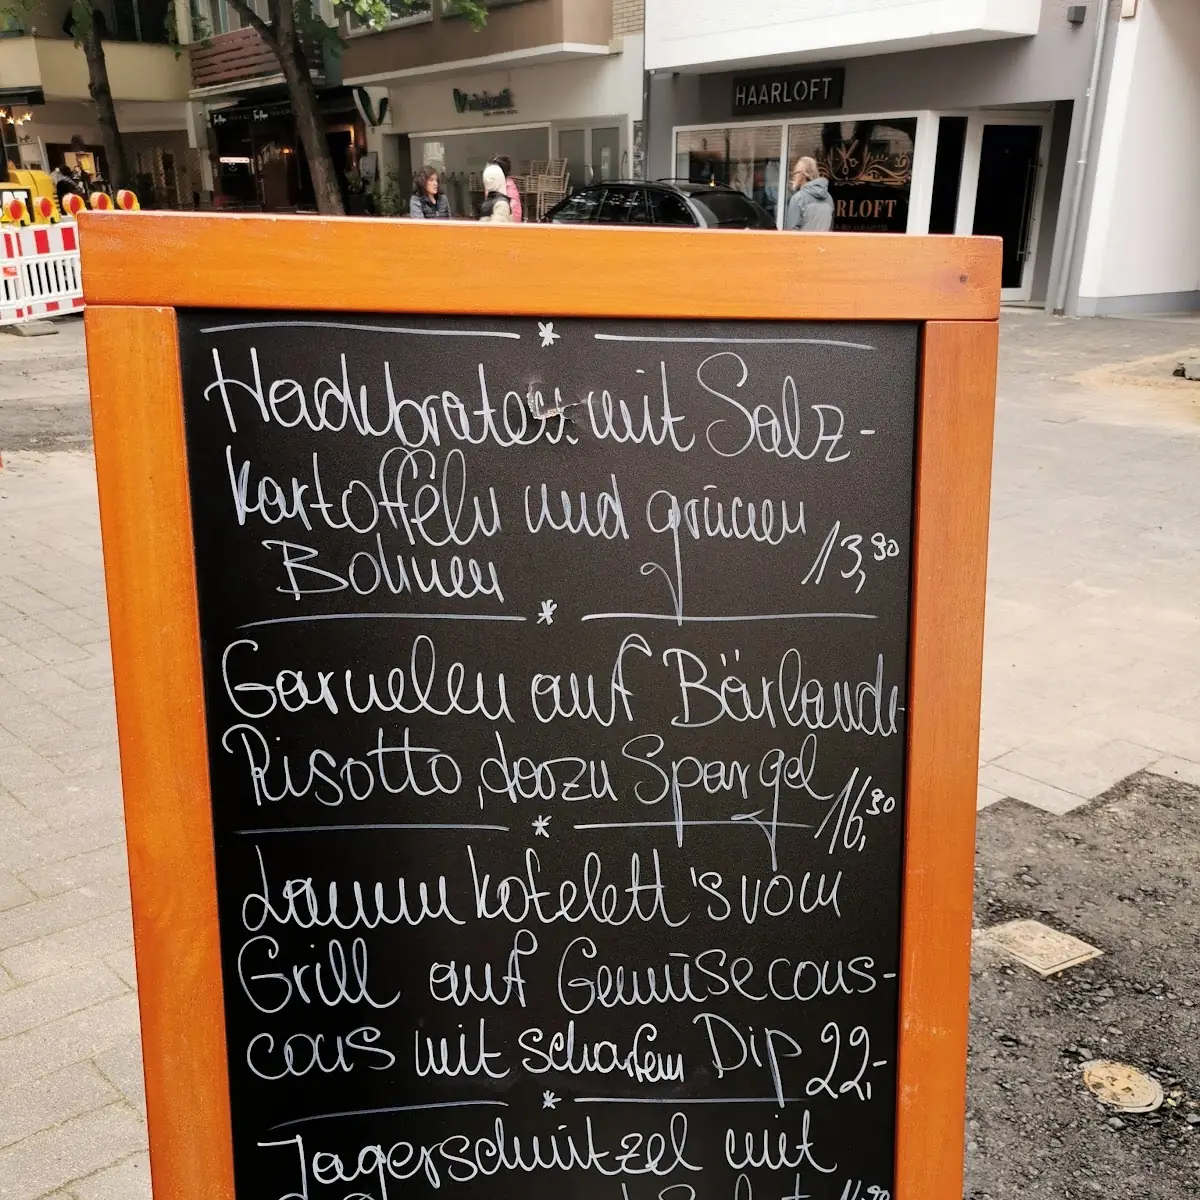 HAARLOFT
RLOFT
Hackbraten mit Salz-
kartoffeln und grünen
Bohnen 13,90
Garnelen auf Bärlauch-
Risotto, dazu Spargel 16,90
Lammkotelett's vom
Grill auf Gemüsecous-
cous mit scharfem Dip 22,-
Jägerschnitzel mit